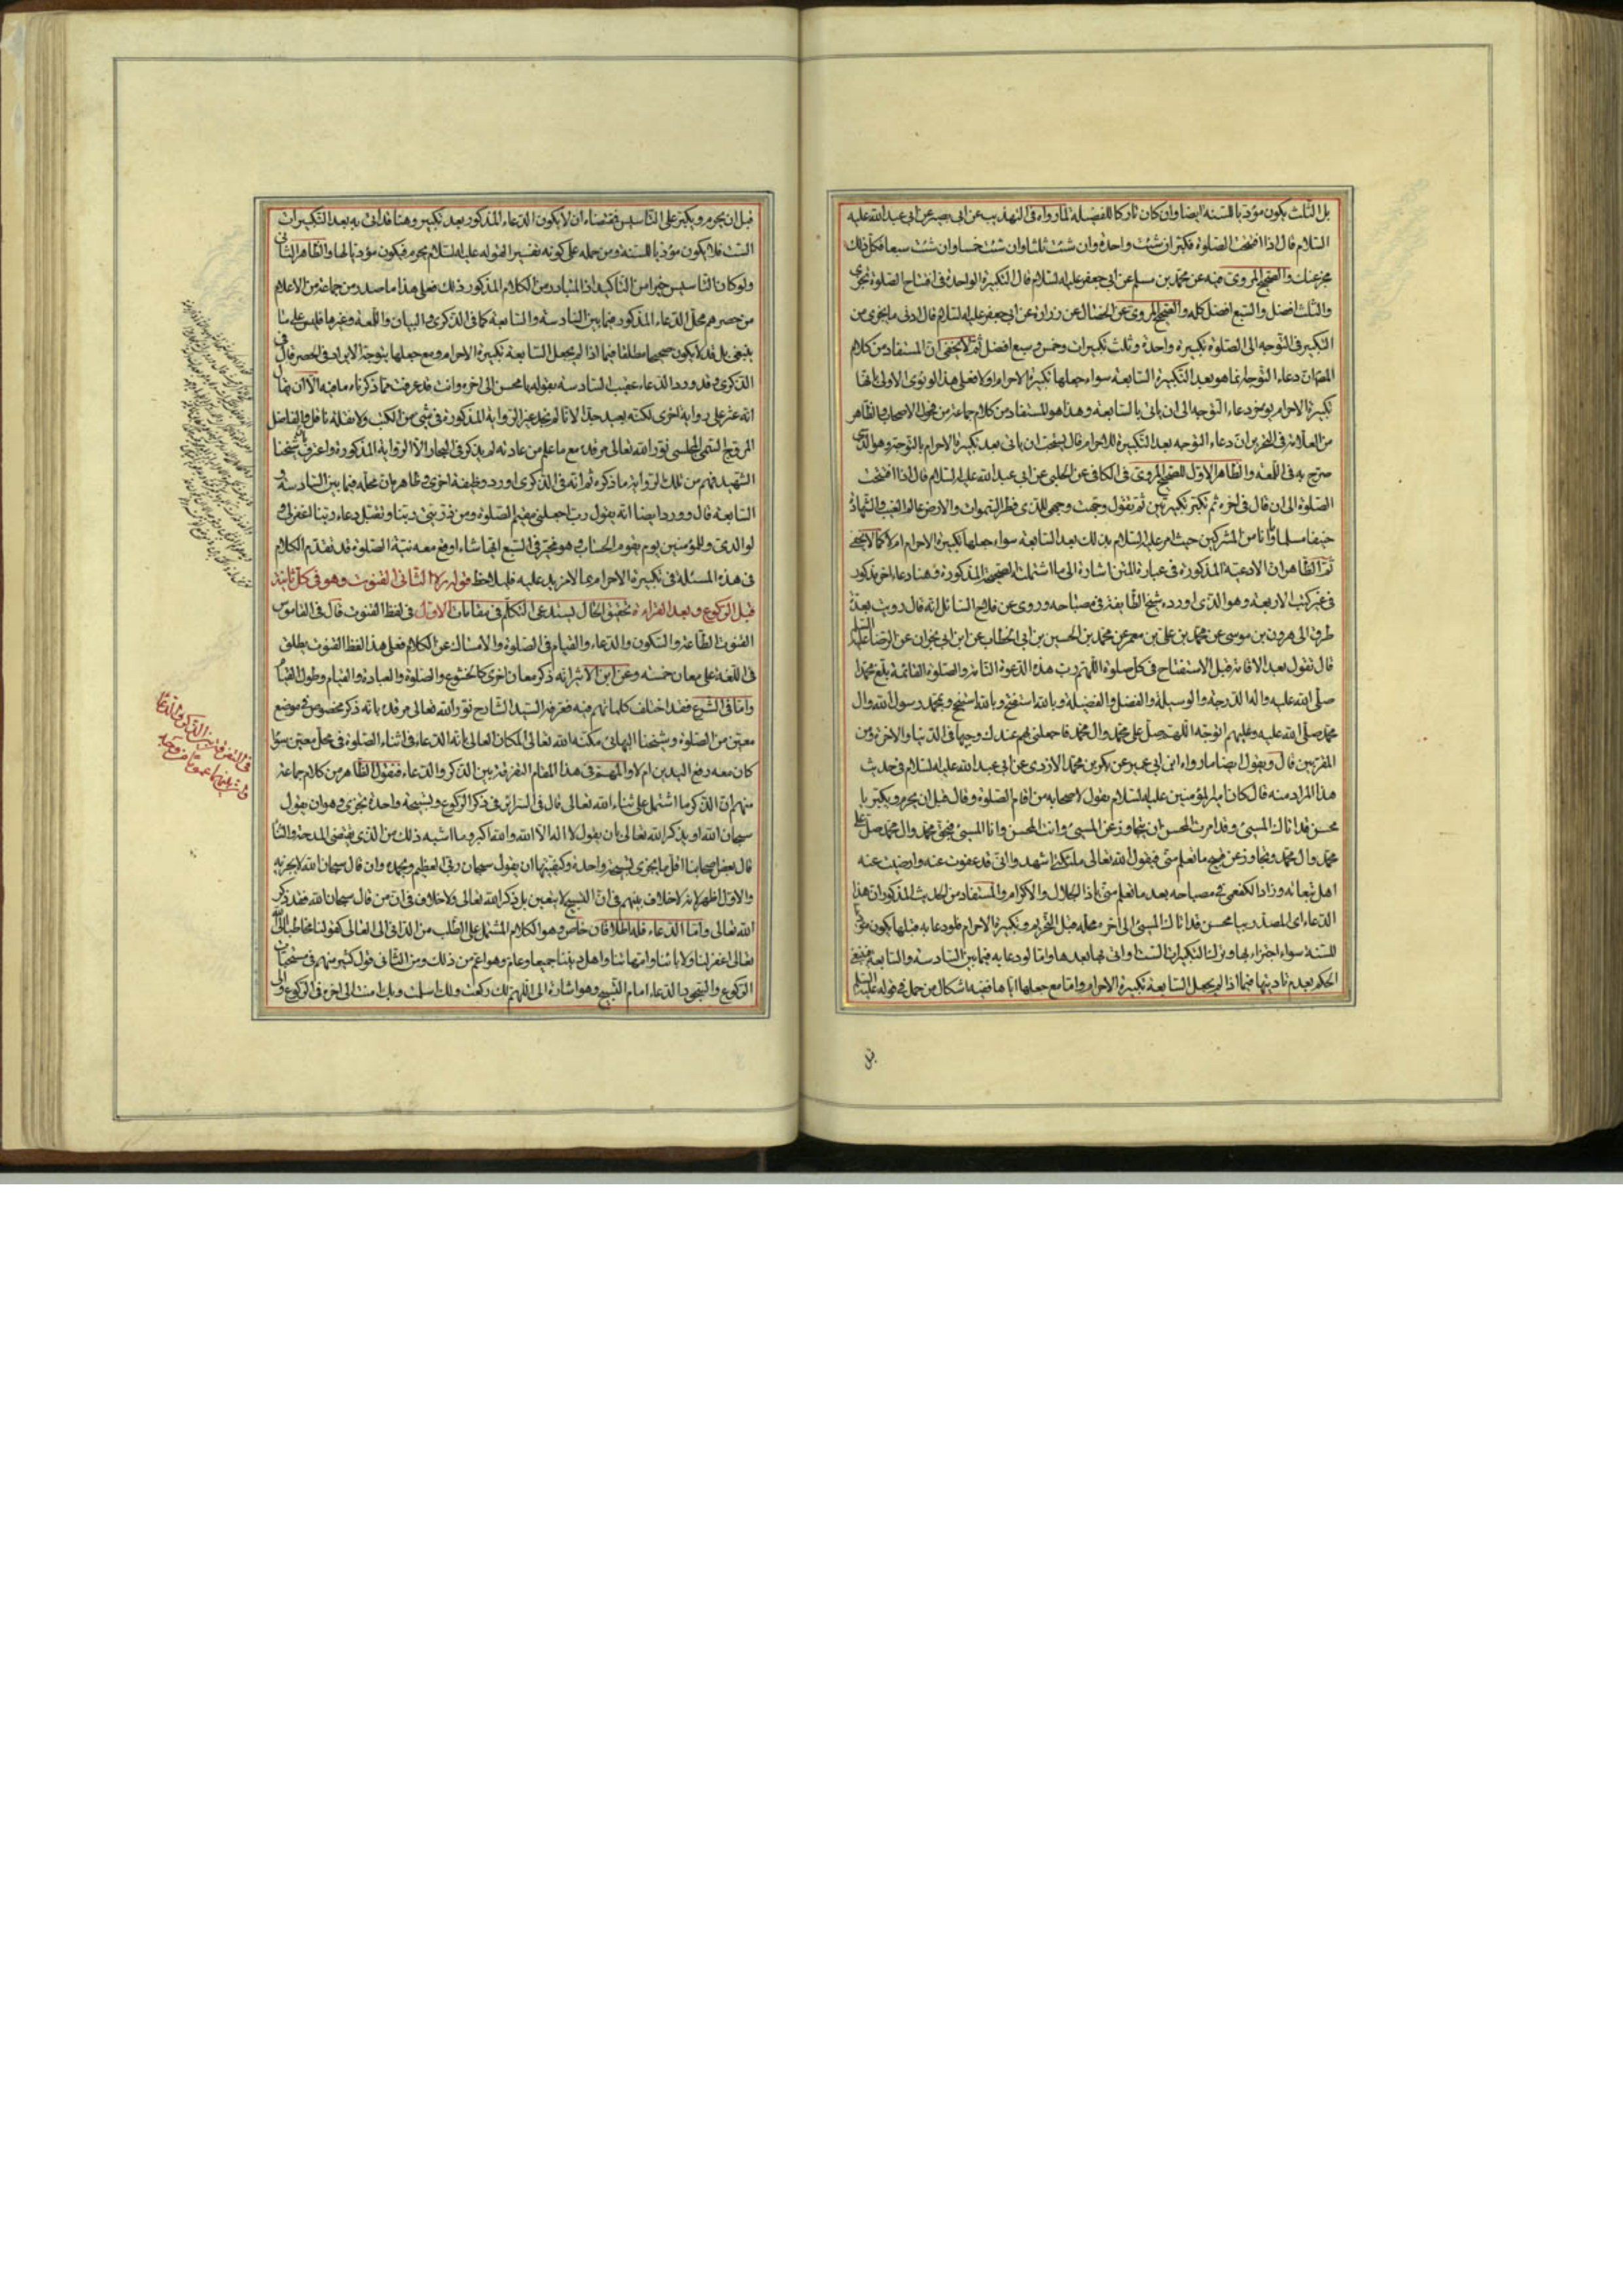 بل الثلث يكون مؤديا للسنة ايضا وان كان تاركا للفضيلة لما رواه في التهذيب عن ابي بصير عن ابي عبد الله عليه
السلام قال اذا افتتحت الصلوة فكبر ان شئت واحدة وان شئت ثلثا وان شئت خمسا وان شئت سبعا فكل ذلك
مجز عنك والصحيح المروي فيه عن محمد بن مسلم عن ابي جعفر عليه السلام قال التكبيرة الواحدة في افتتاح الصلوة تجزي
والثلث افضل والسبع افضل كله والصحيح المروي عن الخصال عن زرارة عن ابي جعفر عليه السلام قال ادنى ما يجزي من
التكبير في التوجه الى الصلوة تكبيرة واحدة وثلث تكبيرات وخمس وسبع افضل ثم لا يخفى ان المستفاد من كلام
المص ان دعاء التوجه انما هو بعد التكبيرة السابعة سواء جعلها تكبيرة الاحرام او لا فعلى هذا لو نوى الاولى بانها
تكبيرة الاحرام يؤخر دعاء التوجه الى ان ياتي بالسابعة وهذا هو المستفاد من كلام جماعة من فحول الاصحاب والظاهر
من العلامة في التحرير ان دعاء التوجه بعد التكبيرة للاحرام قال يستحب ان ياتي بعد تكبيرة الاحرام بالتوجه وهو الذي
صرح به في اللمعة والظاهر الاول للصحيح المروي في الكافي عن الحلبي عن ابي عبد الله عليه السلام قال اذا افتتحت
الصلوة الى ان قال في اخره ثم تكبر تكبيرتين ثم تقول وجهت وجهي للذي فطر السموات والارض عالم الغيب والشهادة
حنيفا مسلما وما انا من المشركين حيث امر عليه السلام بذلك بعد السابعة سواء جعلها تكبيرة الاحرام ام لا كما لا يخفى
ثم الظاهر ان الادعية المذكورة في عبارة المتن اشارة الى ما اشتملت الصحيحة المذكورة وهنا دعاء اخر مذكور
في غير كتب الاربعة وهو الذي اورده شيخ الطايفة في مصباحه وروى عن فلاح السائل انه قال رويت بعدة
طرق الى هرون بن موسى عن محمد بن علي بن معمر عن محمد بن الحسين بن ابي الخطاب عن ابن ابي نجران عن الرضا عليه السلام
قال تقول بعد الاقامة قبل الاستفتاح في كل صلوة اللهم رب هذه الدعوة التامة والصلوة القائمة بلغ محمدا
صلى الله عليه واله الدرجة والوسيلة والفضل والفضيلة وبالله استفتح وبالله استنجح وبمحمد رسول الله وال
محمد صلى الله عليه وعليهم اتوجه اللهم صل على محمد وال محمد فاجعلني بهم عندك وجيها في الدنيا والاخرة ومن
المقربين قال ويقول ايضا ما رواه ابن ابي عمير عن بكر بن محمد الازدي عن ابي عبد الله عليه السلام في حديث
هذا المراد منه قال كان امير المؤمنين عليه السلام يقول لاصحابه من اقام الصلوة وقال قبل ان يحرم ويكبر يا
محسن قد اتاك المسيئ وقد امرت المحسن ان يتجاوز عن المسيئ وانت المحسن وانا المسيئ فبحق محمد وال محمد صل على
محمد وال محمد وتجاوز عن قبيح ما تعلم مني فيقول الله تعالى ملئكتي اشهدوا اني قد عفوت عنه وارضيت عنه
اهل تبعاته وزاد الكفعمي في مصباحه بعد ما تعلم مني يا ذا الجلال والاكرام والمستفاد من الحديث المذكور ان هذا
الدعاء اي المصدر بيا محسن قد اتاك المسيئ الى اخر محله قبل التحريم وتكبيرة الاحرام فلو دعا به قبلها يكون مؤديا
للسنة سواء اجتزاء بها وترك التكبيرات الست او اتى بها بعدها واما لو دعا به فيما بين السادسة والسابعة فينبغي
الحكم بعدم تاديتها فيما اذا لم يجعل السابعة تكبيرة الاحرام واما مع جعلها اياها ففيه اشكال من حمل في قوله عليه السلم
قبل
قبل ان يحرم ويكبر على التاسيس فمقتضاه ان لا يكون الدعاء المذكور بعد تكبير وهنا قد اتى به بعد التكبيرات
الست فلا يكون مؤديا للسنة ومن حمله على كونه تفسيرا لقوله عليه السلام يحرم فيكون مؤديا لها والظاهر الثاني
ولو كان التاسيس خيرا من التاكيد اذ المتبادر من الكلام المذكور ذلك فعلى هذا ما صدر من جماعة من الاعلام
من حصرهم محل الدعاء المذكور فيما بين السادسة والسابعة كما في الذكرى والبيان واللمعة وغيرها فليس على ما
ينبغي بل قد لا يكون صحيحا مطلقا فيما اذا لم يجعل السابعة تكبيرة الاحرام ومع جعلها يتوجه الايراد في الحصر قال في
الذكرى وقد ورد الدعاء عقيب السادسة بقوله يا محسن الى اخره وانت قد عرفت مما ذكرناه ما فيه الا ان يقال
انه عثر على رواية اخرى لكنه بعيد جدا لانا لم نجد غير الرواية المذكورة في شيئ من الكتب ولا نقله ناقل والفاضل
المروج التقي المجلسي نور الله تعالى مرقده مع ما علم من عادته لم يذكر في البحار الا الرواية المذكورة واعترف بان شيخنا
الشهيد فهم من تلك الرواية ما ذكره ثم انه في الذكرى اورد وظيفة اخرى وظاهره ان محله فيما بين السادسة و
السابعة قال وورد ايضا انه يقول رب اجعلني مقيم الصلوة ومن ذريتي ربنا وتقبل دعاء ربنا اغفر لي و
لوالدي وللمؤمنين يوم يقوم الحساب وهو مخير في السبع ايها شاء اوقع معه نية الصلوة قد تقدم الكلام
في هذه المسئلة في تكبيرة الاحرام بما لا مزيد عليه فليلاحظ قوله ره الثاني القنوت وهو في كل ثانية
قبل الركوع وبعد القراءة تحقيق الحال يستدعي التكلم في مقامات الاول في لفظ القنوت قال في القاموس
القنوت الطاعة والسكوت والدعاء والقيام في الصلوة والامساك عن الكلام فعلى هذا لفظ القنوت يطلق
في اللغة على معان خمسة وعن ابن الاثير انه ذكر معان اخرى كالخشوع والصلوة والعبادة والقيام وطول القيام
واما في الشرع فقد اختلف كلماتهم فيه فعرفه السيد الشارح نور الله تعالى مرقده بانه ذكر مخصوص في موضع
معين من الصلوة وشيخنا البهائي مكنه الله تعالى المكان العالي بانه الدعاء في اثناء الصلوة في محل معين سواء
كان معه رفع اليدين ام لا والمهم في هذا المقام التفرقة بين الذكر والدعاء فنقول الظاهر من كلام جماعة
منهم ان الذكر ما اشتمل على ثناء الله تعالى قال في السرائر في ذكر الركوع وتسبيحة واحدة تجزي وهو ان يقول
سبحان الله او يذكر الله تعالى بان يقول لا اله الا الله والله اكبر وما اشبه ذلك من الذي يقتضي المدحة والثناء
قال بعض اصحابنا اقل ما يجزي تسبيحة واحدة وكيفيتها ان يقول سبحان ربي العظيم وبحمده وان قال سبحان الله لا يجزيه
والاول اظهر لانه لا خلاف بينهم في ان التسبيح لا يتعين بل ذكر الله تعالى ولا خلاف في ان من قال سبحان الله فقد ذكر
الله تعالى واما الدعاء فله اطلاقان خاص وهو الكلام المشتمل على الطلب من الداني الى العالي كقولنا مخاطبا الى الله
تعالى اغفر لنا ولابائنا وامهاتنا واهل ديننا جميعا وعام وهو اعم من ذلك ومن الثاني قول كثير منهم في مستحبات
الركوع والسجود الدعاء امام التسبيح وهو اشارة الى اللهم لك ركعت ولك اسلمت وبك امنت الى اخره في الركوع والى
في التفرقة بين الذكر والدعاء